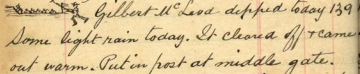 Gilbert McLeod dipped today 139
Some light rain today. It cleared off & came
out warm. Put in post at middle gate.